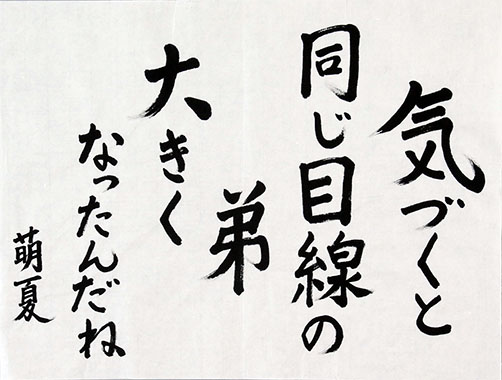 気づくと
同じ目線の
弟
大きく
なったんだね
萌夏